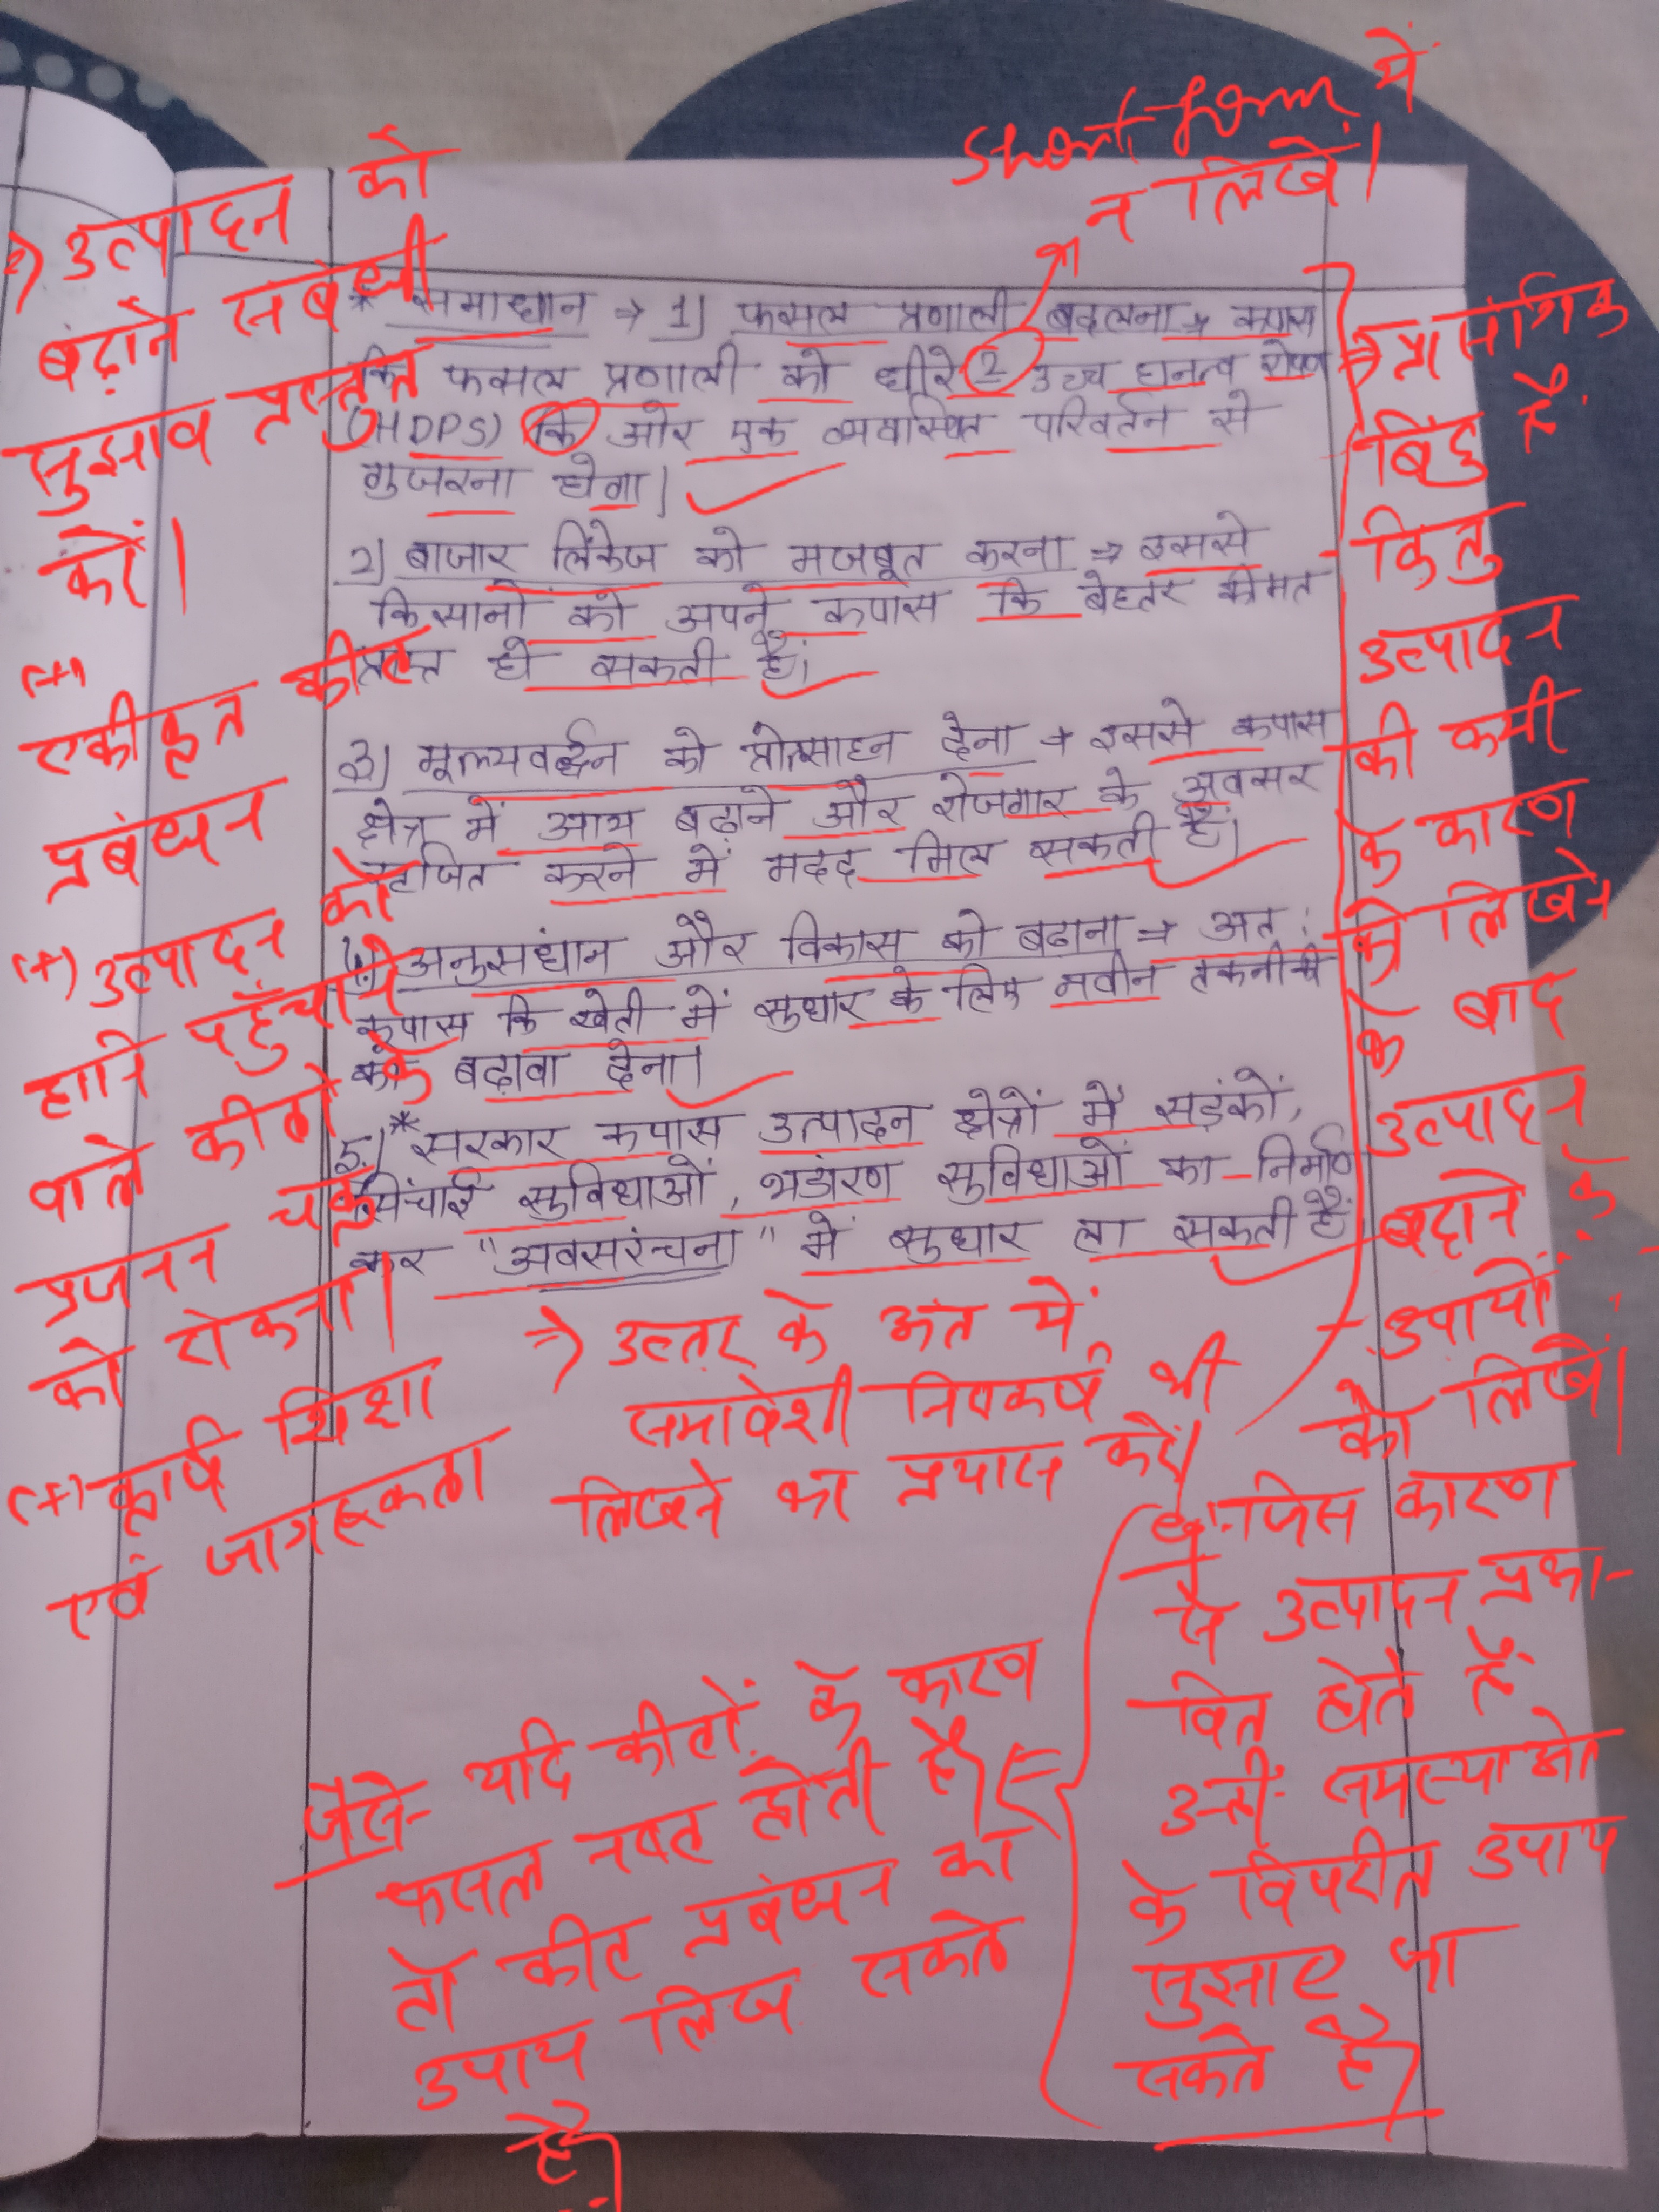 short form में
न लिखें।
* समाधान → 1) फसल प्रणाली बदलना → कपास
कि फसल प्रणाली को धीरे 2 उच्च घनत्व रोपण
(HDPS) कि ओर एक व्यवस्थित परिवर्तन से
गुजरना होगा।
2) बाजार लिंकेज को मजबूत करना → इससे
किसानों को अपने कपास कि बेहतर कीमत
प्राप्त हो सकती है।
3) मूल्यवर्द्धन को प्रोत्साहन देना → इससे कपास
क्षेत्र में आय बढ़ाने और रोजगार के अवसर
सृजित करने में मदद मिल सकती है।
4) अनुसंधान और विकास को बढ़ाना → अत:
कपास कि खेती में सुधार के लिए नवीन तकनीकी
को बढ़ावा देना।
5.) * सरकार कपास उत्पादन क्षेत्रों में सड़कों,
सिंचाई सुविधाओं, भडांरण सुविधाओं का निर्माण
कर "अवसरंचना" में सुधार ला सकती है।
→ उत्तर के अंत में
समावेशी निष्कर्ष भी
लिखने का प्रयास करें।
→ उत्पादन को
बढ़ाने संबंधी
सुझाव प्रस्तुत
करें।
(+)
एकीकृत कीट
प्रबंधन
(+) उत्पादन को
हानि पहुँचाने
वाले कीटों के
प्रजनन चक्र
को रोकना।
(+) कृषि शिक्षा
एवं जागरूकता
→ प्रासंगिक
बिंदु हैं
किंतु
उत्पादन
की कमी
के कारण
को लिखने
के बाद
उत्पादन
बढ़ाने के
उपायों
को लिखें।
जिस कारण
से उत्पादन प्रभा-
वित होते हैं
उन्हीं समस्याओं
के विपरीत उपाय
सुझाए जा
सकते हैं।
जैसे- यदि कीटों के कारण
फसल नष्ट होती है
तो कीट प्रबंधन का
उपाय लिख सकते
हैं।